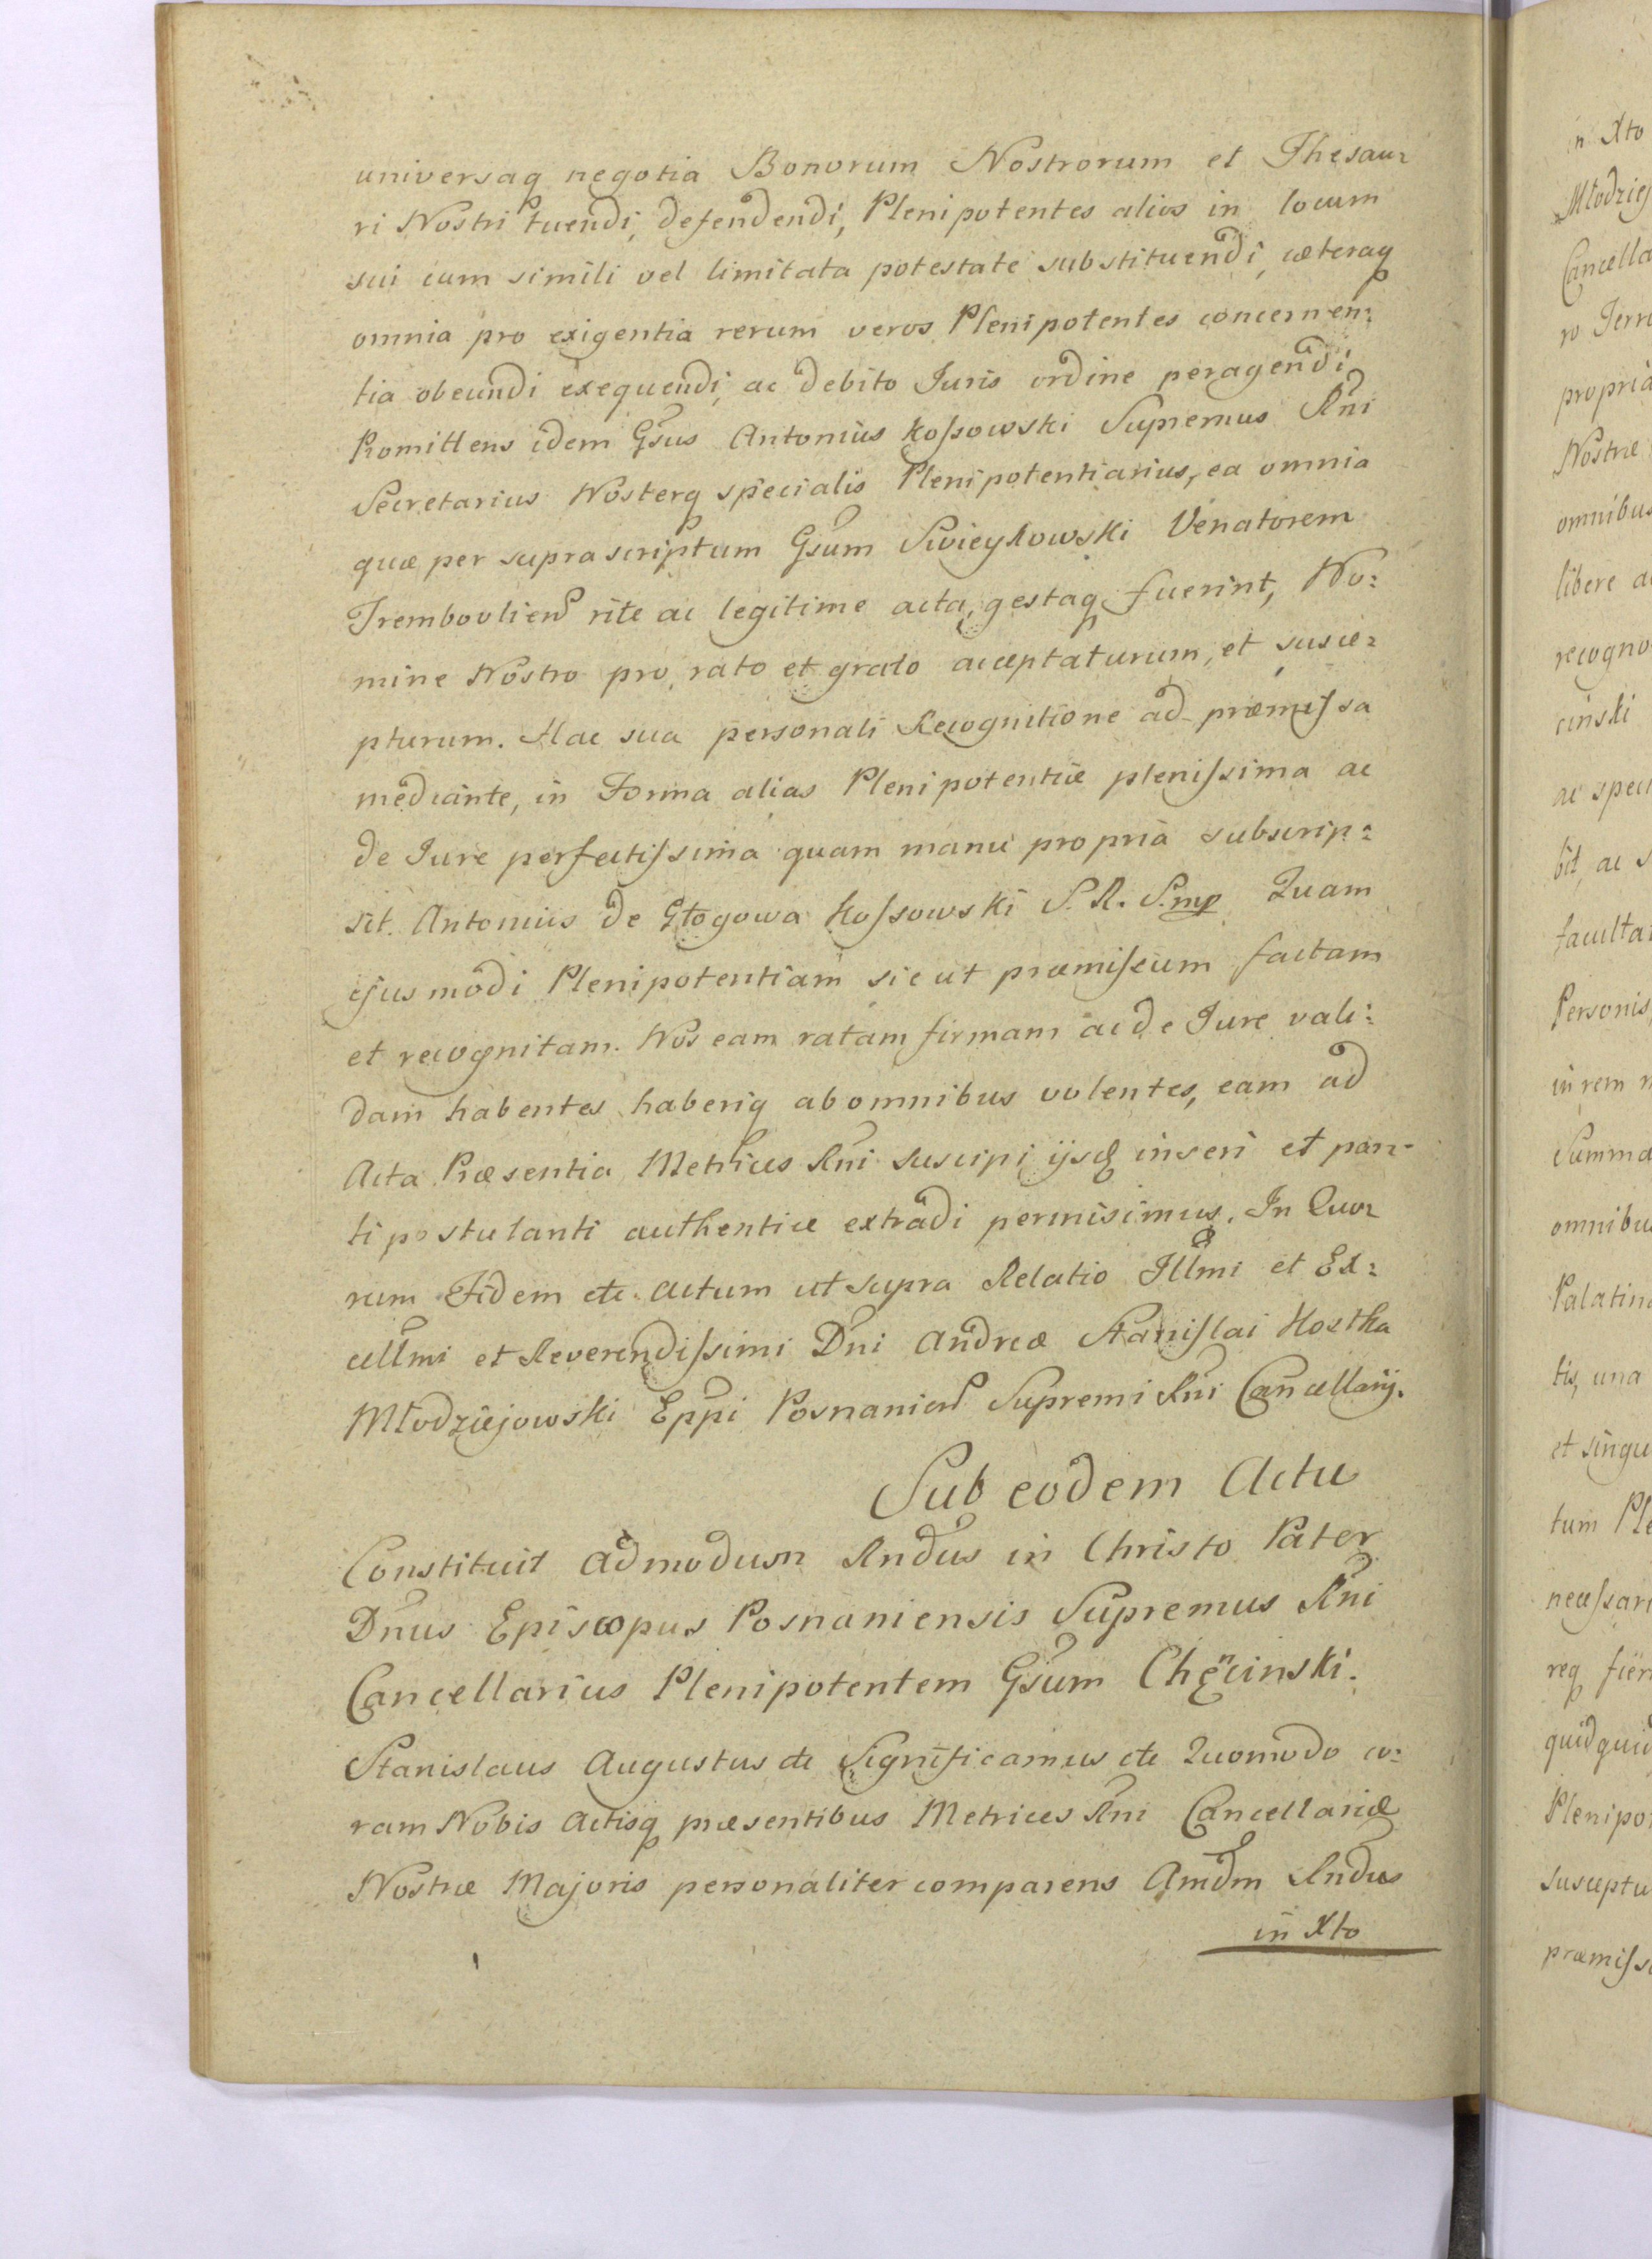 universaq negotia Bonorum Nostrorum et Thesau=
ri Nostri tuendi, defendendi, Plenipotentes alios in locum
sui cum simili vel limitata potestate substituendi, cæteraq
omnia pro exigentia rerum veros Plenipotentes concernen=
tia obeundi exequendi, ac debito Juris ordine peragendi,
Promittens idem Gsus Antonius Kossowski Supremus Rni
Secretarius Nosterq specialis Plenipotentiarius, ea omnia
quæ per suprascriptum Gsum Swieykowski Venatorem
Trembovlien rite ac legitime acta, gestaq fuerint, No=
mine Nostro pro rato et grato acceptaturum, et susce=
pturum. Hac sua personali Recognitione ad præmissa
mediante, in Forma alias Plenipotentiæ plenissima ac
de Jure perfectissima quam manu propria subscrip=
sit. Antonius de Głogowa Kossowski S. R. S. mp Quam
ejusmodi Plenipotentiam sic ut præmissum factam
et recognitam. Nos eam ratam firmam ac de Jure vali=
dam habentes haberiq ab omnibus volentes, eam ad
Acta Præsentia Metrices Rni suscipi ijsq inseri et par=
ti postulanti authentice extradi permisimus. In Quo=
rum Fidem etc Actum ut supra Relatio Illmi et Ex=
cellmi et Reverendissimi Dni Andreæ Stanislai Kostka
Młodziejowski Eppi Posnanien Supremi Rni Cancellarij.
Sub eodem Actu
Constituit admodum Rndus in Christo Pater
Dnus Episcopus Posnaniensis Supremus Rni
Cancellarius Plenipotentem Gsum Chęcinski.
Stanislaus Augustus etc Significamus etc Quomodo co=
ram Nobis Actisq præsentibus Metrices Rni Cancellariæ
Nostræ Majoris personaliter comparens Amdm Rndus
in Xto
n Xto
Młodziej
Cancella
ro Terr
propria
Nostræ
omnibus
libere a
recogno
cinski
ac spec
bit, ac s
faculta
Personis
in rem n
Summa
omnibu
Palatin
tis, una
et singu
tum Ple
necessari
req fier
quidquid
Plenipot
susceptu
præmiss